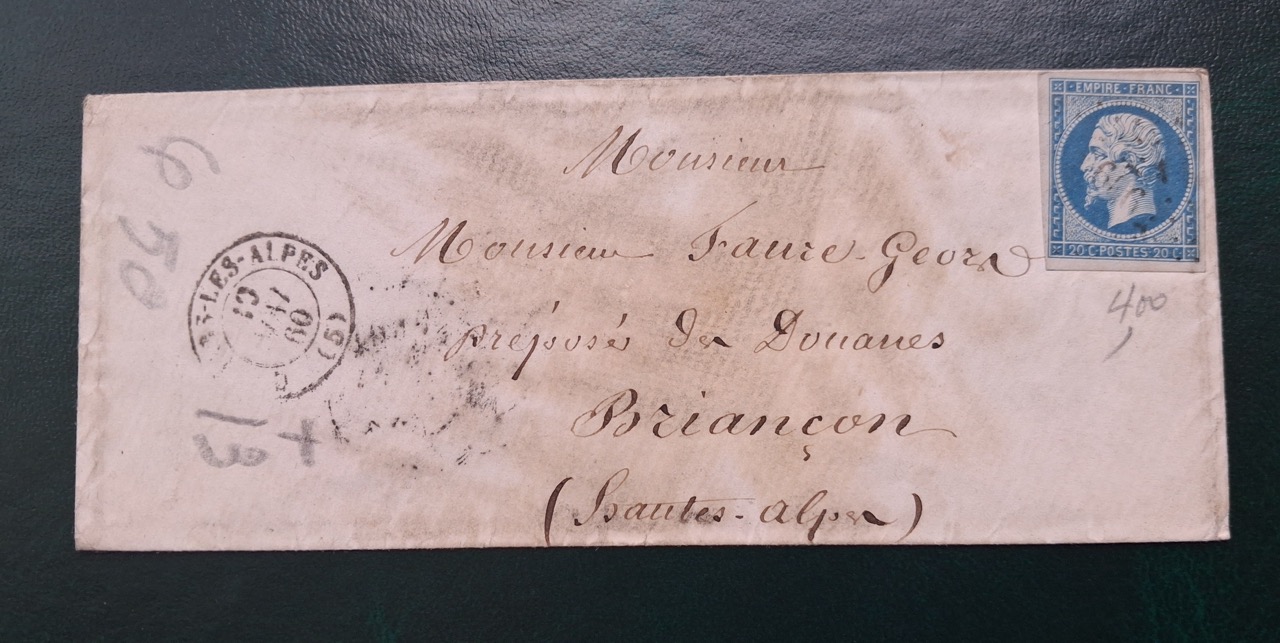 EMPIRE - FRANC -
20 C · POSTES · 20 C
Monsieur
Monsieur Faure Georges
préposé des Douanes
Briançon
(Hautes-Alpes)
400
6
50
-LES-ALPES (5)
13
60
+
13